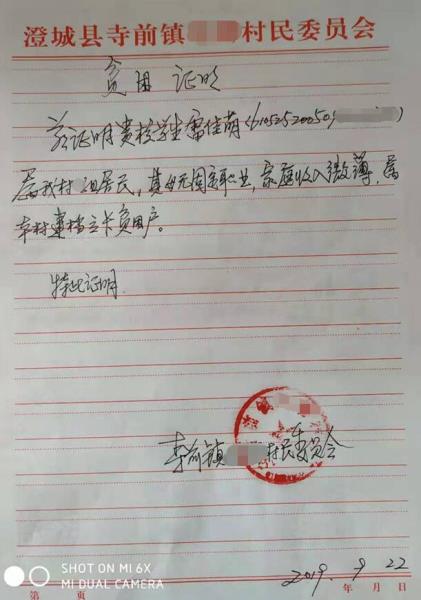 澄城县寺前镇 村民委员会
贫困 证明
兹证明贵校学生雷佳萌(6105252005
属我村 组居民,其母无固定职业,家庭收入微薄,属
本村建档立卡贫困户。
特此证明.
寺前镇 村民委员会
2019. 9 . 22
年 月 日
第 页
SHOT ON MI 6X
MI DUAL CAMERA